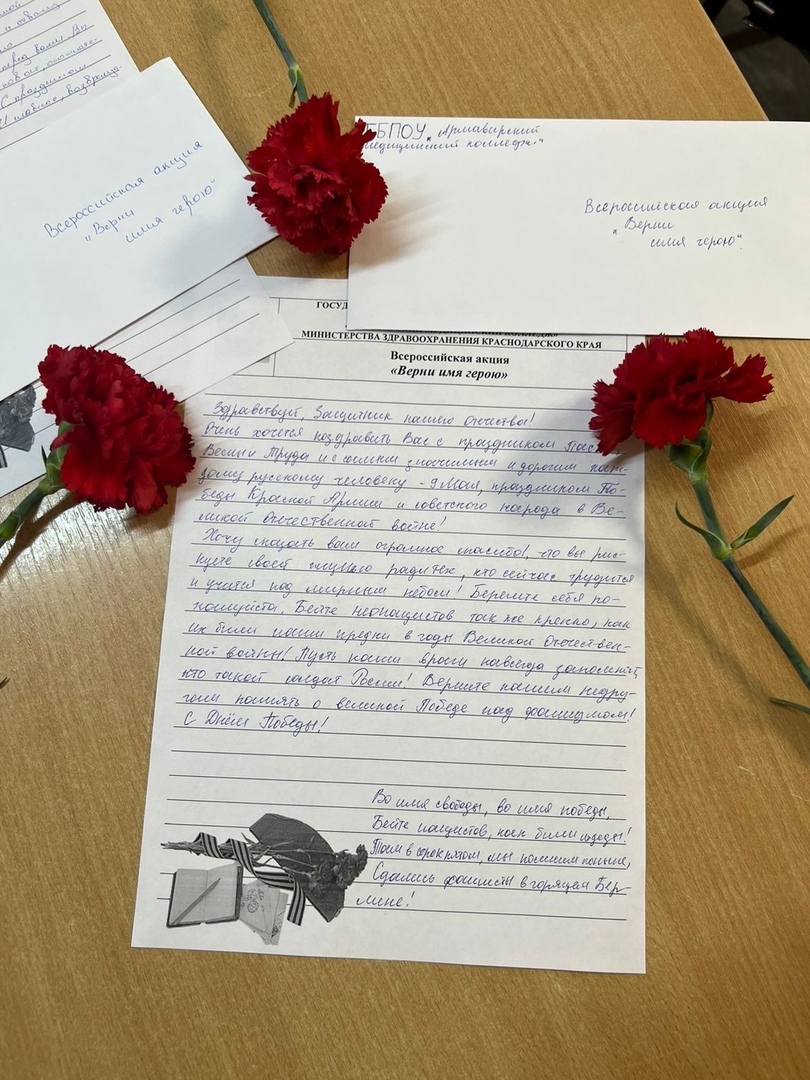 и отвага
перед вами. Вы
С праздником
И главное, возвраща-
Всероссийская акция
„Верни
имя герою“
ГБПОУ „Армавирский
медицинский колледж“
Всероссийская акция
„Верни
имя герою“
ГОСУД
МИНИСТЕРСТВА ЗДРАВООХРАНЕНИЯ КРАСНОДАРСКОГО КРАЯ
Всероссийская акция
«Верни имя герою»
Здравствуй, Защитник нашего Отечества!
Очень хочется поздравить Вас с праздником Пас
Весны и Труда и с самым значимым и дорогим каж-
дому русскому человеку - 9 Мая, праздником По-
беды Красной Армии и советского народа в Ве-
ликой Отечественной войне!
Хочу сказать вам огромное спасибо!, что вы рис-
куете своей жизнью ради тех, кто сейчас трудится
и учится под мирным небом! Берегите себя по-
жалуйста. Бейте неонацистов так же крепко, как
их били наши предки в годы Великой Отечествен-
ной войны! Пусть наши враги навсегда запомнят,
кто такой солдат России! Верните нашим недру-
гам память о великой Победе над фашизмом!
С Днём Победы!
Во имя свободы, во имя победы,
Бейте нацистов, как били их деды!
Там в сорок пятом, мы помним поныне,
Сдались фашисты в горящем Бер-
лине!